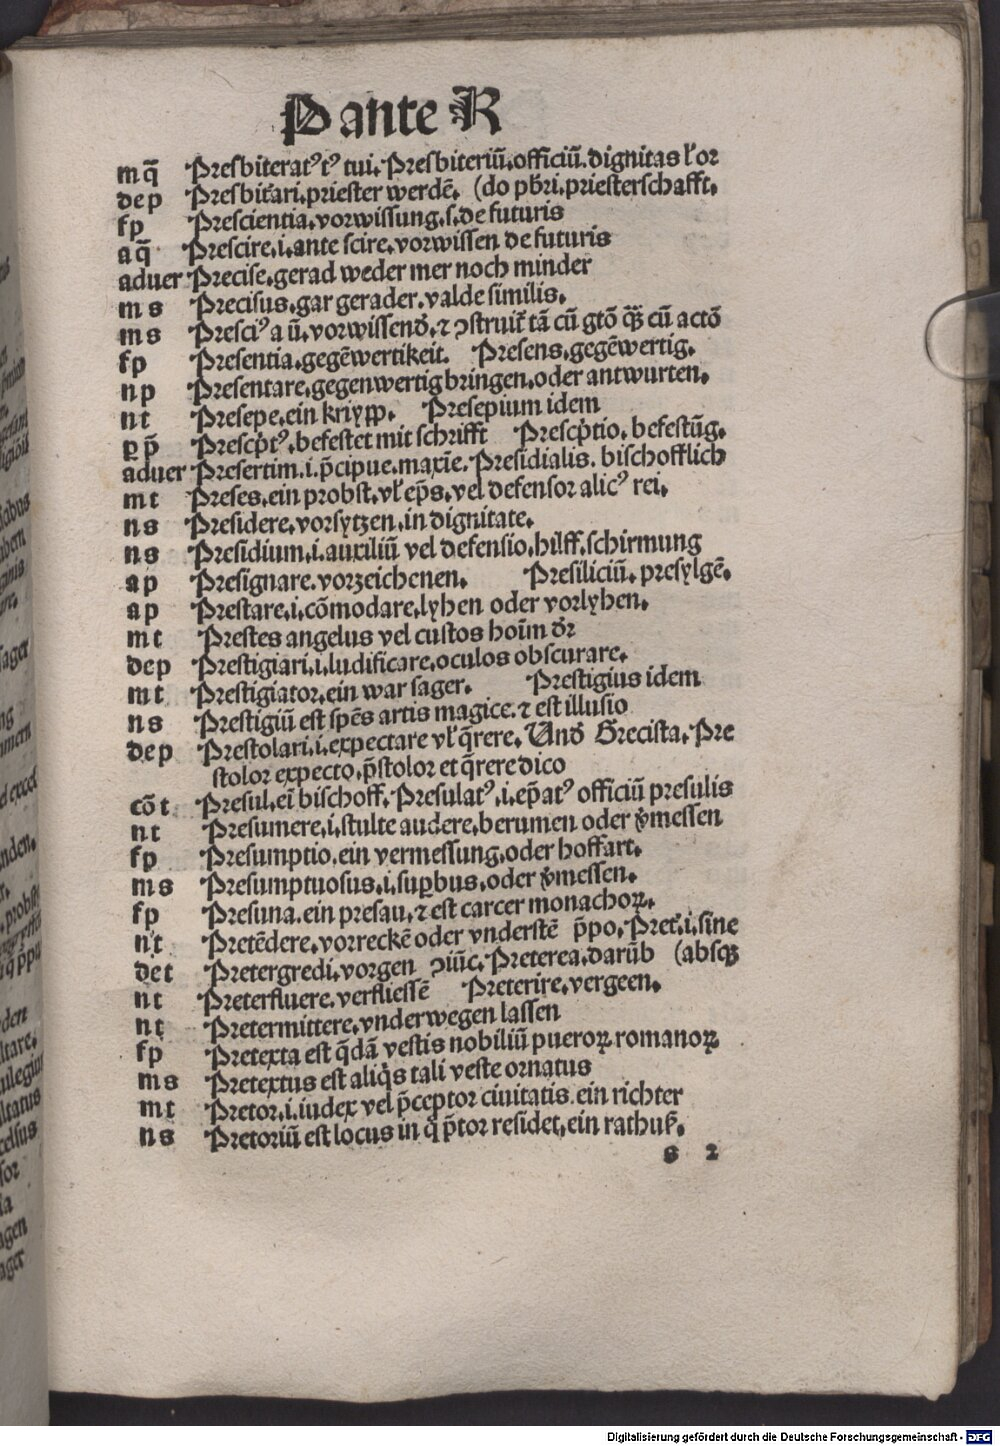 P ante R
m q̄ Presbiteratꝰ tꝰ tui. Presbiteriū. officiū. dignitas ł or
dep Presbit̄ari. priester werdē. (do pb̄ri. priesterschafft.
fp Prescientia. vorwissung. s. de futuris
a q̄ Prescire. i. ante scire. vorwissen de futuris
aduer Precise. gerad weder mer noch minder
m s Precisus. gar gerader. valde similis.
m s Presciꝰ a ū. vorwissend̄. ⁊ ꝯstruit̄ tā cū gtō qꝫ cū actō
fp Presentia. gegēwertikeit. Presens. gegēwertig.
n p Presentare. gegenwertig bringen. oder antwurten.
n t Presepe. ein kriypp. Presepium idem
ꝑ p̄ Prescp̄tꝰ. befestet mit schrifft Prescp̄tio. befestūg.
aduer Presertim. i. p̄cipue. maxīe. Presidialis. bischofflich
m t Preses. ein probst. vł ep̄s. vel defensor alicꝰ rei.
n s Presidere. vorsytzen. in dignitate.
n s Presidium. i. auxiliū vel defensio. hilff. schirmung
a p Presignare. vorzeichenen. Presiliciū. presylgē.
a p Prestare. i. cōmodare. lyhen oder vorlyhen.
m t Prestes angelus vel custos hoīm dr̄
dep Prestigiari. i. ludificare. oculos obscurare.
m t Prestigiator. ein war sager. Prestigius idem
n s Prestigiū est spēs artis magice. ⁊ est illusio
dep Prestolari. i. expectare vł q̄rere. Und̄ Grecista. Pre
stolor expecto. p̄stolor et q̄rere dico
cō t Presul. eī bischoff. Presulatꝰ. i. ep̄atꝰ officiū presulis
n t Presumere. i. stulte audere. berumen oder v̄messen
fp Presumptio. ein vermessung. oder hoffart.
m s Presumptuosus. i. suꝑbus. oder v̄messen.
fp Presuna. ein presau. ⁊ est carcer monachoꝝ.
n t Pretēdere. vorreckē oder vnderstē p̄po. Pret̄. i. sine
de t Pretergredi. vorgen ꝯiūc. Preterea. darūb (absqꝫ
n t Preterfluere. verfliessē Preterire. vergeen.
n t Pretermittere. vnderwegen lassen
fp Pretexta est q̄dā vestis nobiliū pueroꝝ. romanoꝝ
m s Pretextus est aliq̄s tali veste ornatus
m t Pretor. i. iudex vel p̄ceptor ciuitatis. ein richter
n s Pretoriū est locus in q̄ p̄tor residet. ein rathuß.
s 2
Digitalisierung gefördert durch die Deutsche Forschungsgemeinschaft - DFG